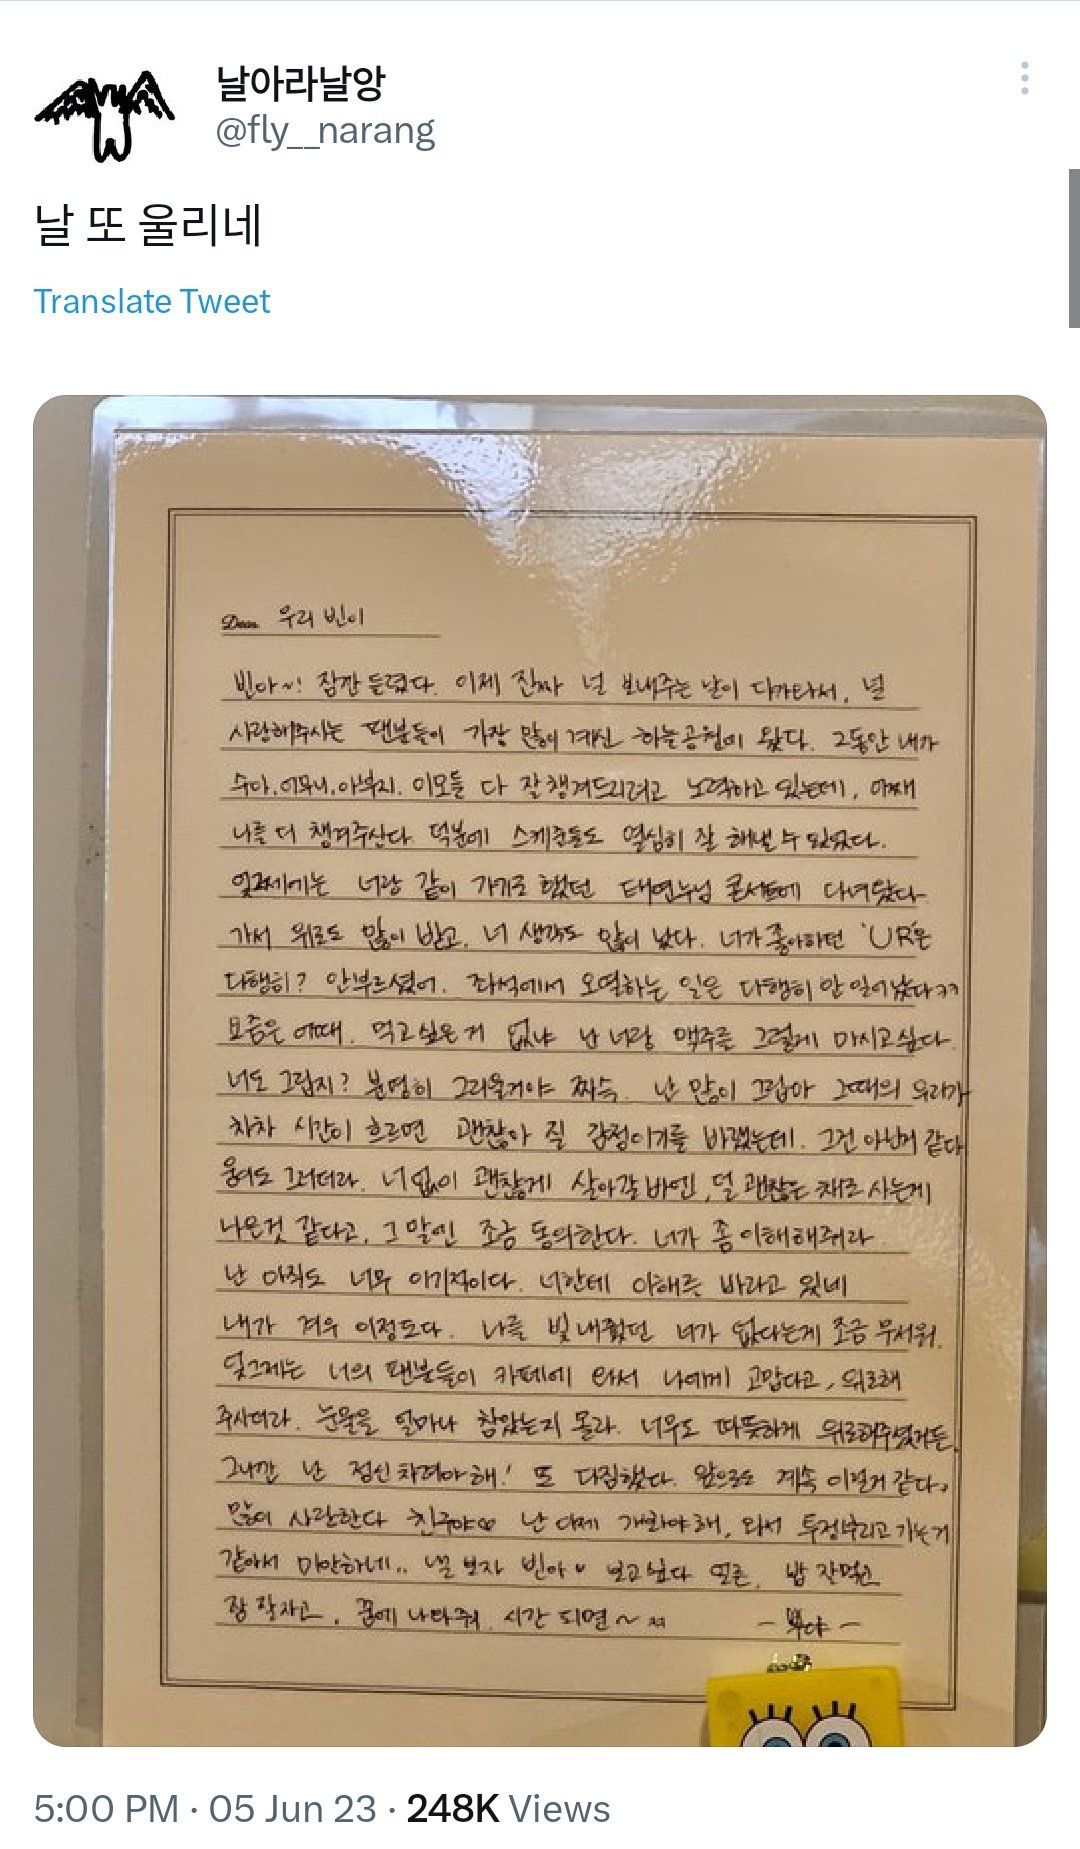 날아라날앙
@fly__narang
날 또 울리네
Translate Tweet
Dear 우리 빈이
빈아~! 잠깐 들렸다. 이제 진짜 널 보내주는 날이 다가와서, 널
사랑해주시는 팬분들이 가장 많이 계신 하늘공원에 왔다. 그동안 내가
수아, 어머니, 아부지, 이모들 다 잘 챙겨드리려고 노력하고 있는데, 어째
나를 더 챙겨주신다 덕분에 스케줄들도 열심히 잘 해낼 수 있었다.
엊그제에는 너랑 같이 가기로 했던 태연누님 콘서트에 다녀왔다
가서 위로도 많이 받고, 너 생각도 많이 났다. 너가 좋아하던 'UR'은
다행히? 안부르셨어. 좌석에서 오열하는 일은 다행히 안 일어났다ㅋㅋ
요즘은 어때. 먹고싶은 거 없냐 난 너랑 맥주를 그렇게 마시고싶다.
너도 그립지? 분명히 그리울거야 짜슥. 난 많이 그립다 그때의 우리가
차차 시간이 흐르면 괜찮아 질 감정이기를 바랬는데. 그건 아닌거 같다
웅이도 그러더라. 너 없이 괜찮게 살아갈 바엔, 덜 괜찮은 채로 사는게
나은것 같다고, 그 말엔 조금 동의한다. 너가 좀 이해해줘라
난 아직도 너무 이기적이다. 너한테 이해를 바라고 있네
내가 겨우 이정도다. 나를 빛내줬던 너가 없다는게 조금 무서워.
엊그제는 너의 팬분들이 카페에 와서 나에게 고맙다고, 위로해
주시더라. 눈물을 얼마나 참았는지 몰라. 너무도 따뜻하게 위로해주셨거든.
그니깐 난 정신차려야 해! 또 다짐했다. 앞으로도 계속 이럴거 같다.
많이 사랑한다 친구야 난 이제 가봐야해, 와서 투정부리고 가는거
같아서 미안하네.. 낼 보자 빈아 보고싶다 얼른. 밥 잘먹고
잠 잘자고, 꿈에 나타줘. 시간 되면~
5:00 PM · 05 Jun 23 · 248K Views